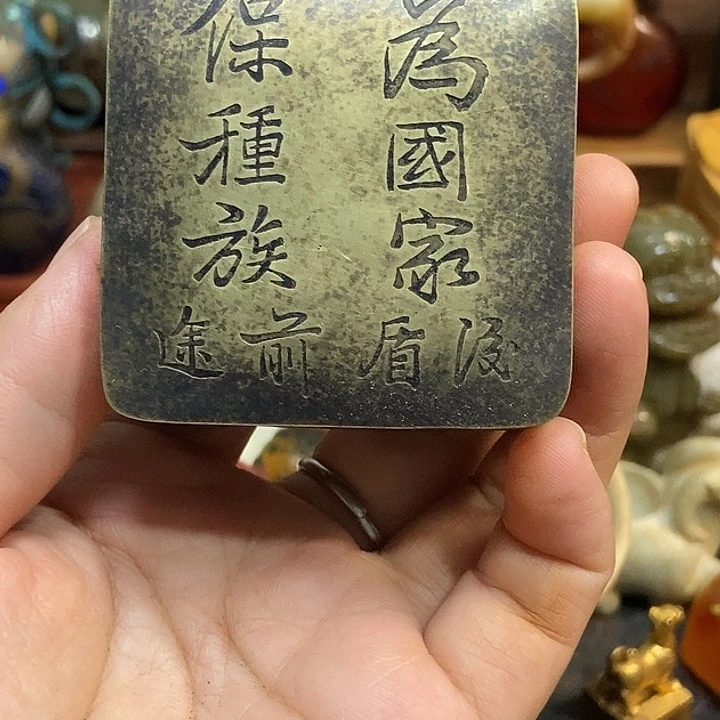 為國家後盾
保種族前途